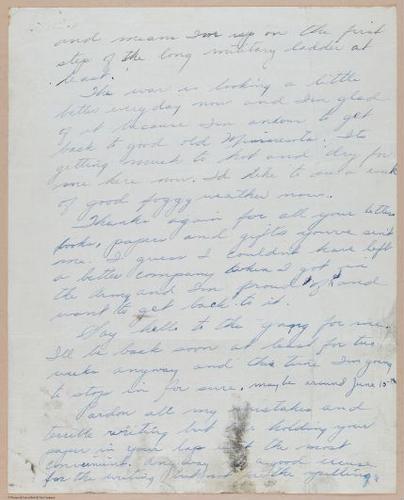 and means I'm up on the first
step of the long military ladder at
least.
The war is looking a little
better everyday now and I'm glad
of it because I'm anxious to get
back to good old Minnesota. Its
getting much to hot and dry for
me here now. I'd like to see a week
of good foggy weather now.
Thanks again for all your letters
books, papers and gifts you've sent
me. I guess I couldn't have left
a better company when I got in
the Army and I'm proud of it and
want to get back to it.
Say hello to the gang for me.
I'll be back soon at least for two
weeks anyway and this time I'm going
to stop in for sure, maybe around June 15th
Pardon all my mistakes and
terrible writing but holding your
paper in your lap the most
convenient. a good excuse
for the writing but not with the spelling.